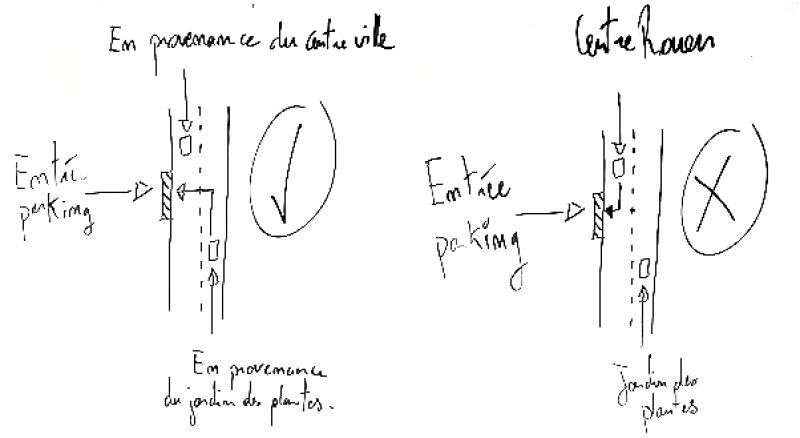 En provenance du centre ville
Centre Rouen
Entrée
parking
Entrée
parking
En provenance
du jardin des plantes.
Jardin des
plantes